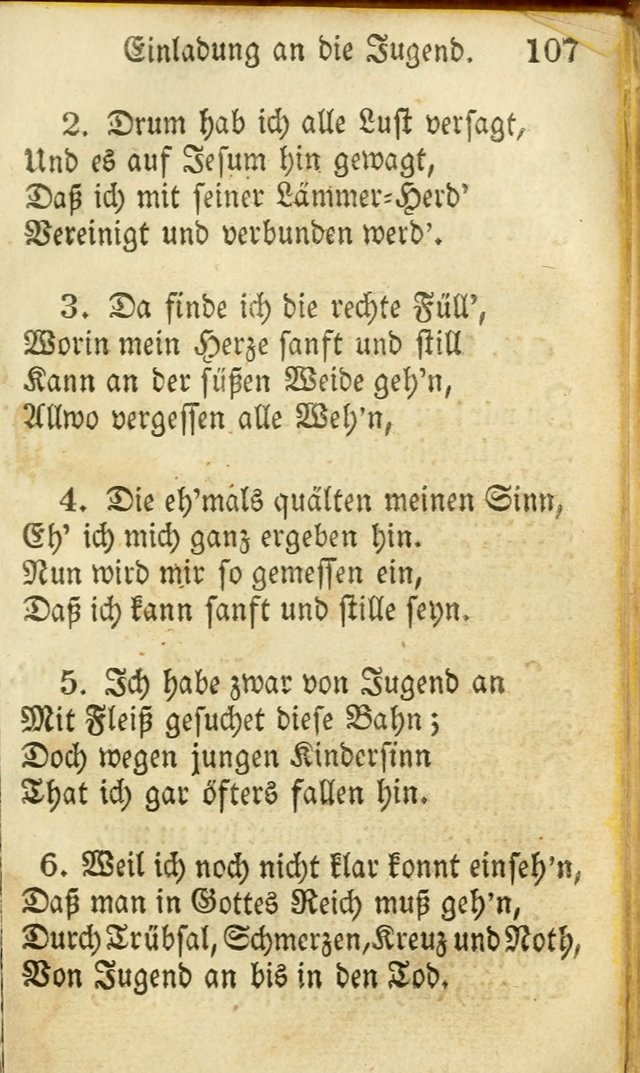 Einladung an die Jugend. 107
2. Drum hab ich alle Lust versagt,
Und es auf Jesum hin gewagt,
Daß ich mit seiner Lämmer-Herd'
Vereinigt und verbunden werd'.
3. Da finde ich die rechte Füll',
Worin mein Herze sanft und still
Kann an der süßen Weide geh'n,
Allwo vergessen alle Weh'n,
4. Die eh'mals quälten meinen Sinn,
Eh' ich mich ganz ergeben hin.
Nun wird mir so gemessen ein,
Daß ich kann sanft und stille seyn.
5. Ich habe zwar von Jugend an
Mit Fleiß gesuchet diese Bahn;
Doch wegen jungen Kindersinn
That ich gar öfters fallen hin.
6. Weil ich noch nicht klar konnt einseh'n,
Daß man in Gottes Reich muß geh'n,
Durch Trübsal, Schmerzen, Kreuz und Noth,
Von Jugend an bis in den Tod.